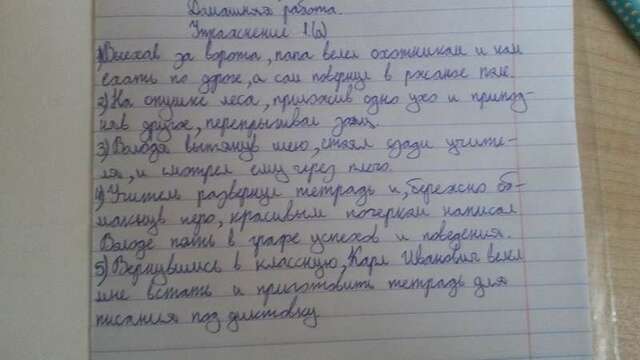 Домашняя работа.
Упражнение 1.(а)
1) Выехав за ворота, папа велел охотникам и нам
ехать по дроге, а сам повернул в ржаное поле.
2) На опушке леса, приложив одно ухо и припод-
няв другое, перепрыгивал заяц.
3) Володя вытянув шею, стоял сзади учите-
ля, и смотрел ему через плечо.
4) Учитель развернул тетрадь и, бережно об-
макнув перо, красивым почерком написал
Володе пять в графе успехов и поведения.
5) Вернувшись в классную, Карл Иванович велел
мне встать и приготовить тетрадь для
писания под диктовку.